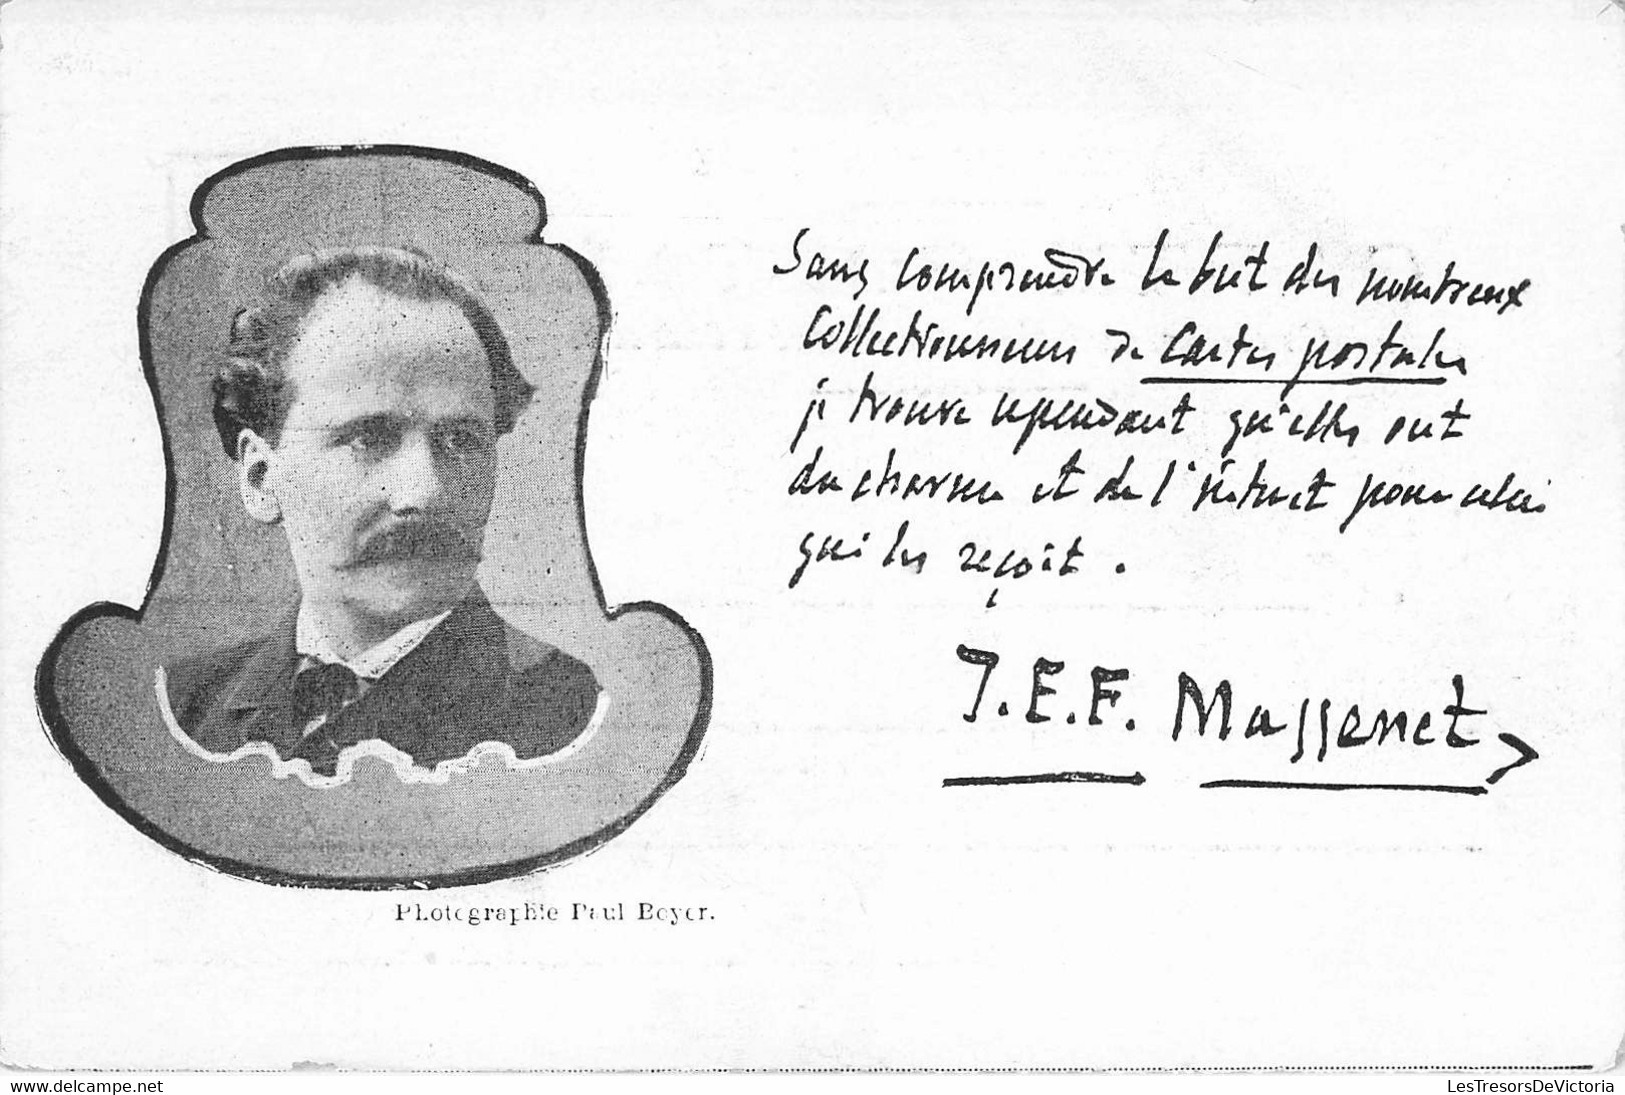 Sans comprendre le but des nombreux
collectionneurs de cartes postales
je trouve cependant qu'elles ont
du charme et de l'intérêt pour celui
qui les reçoit.
J.E.F. Massenet
Photographie Paul Boyer.
www.delcampe.net
LesTresorsDeVictoria